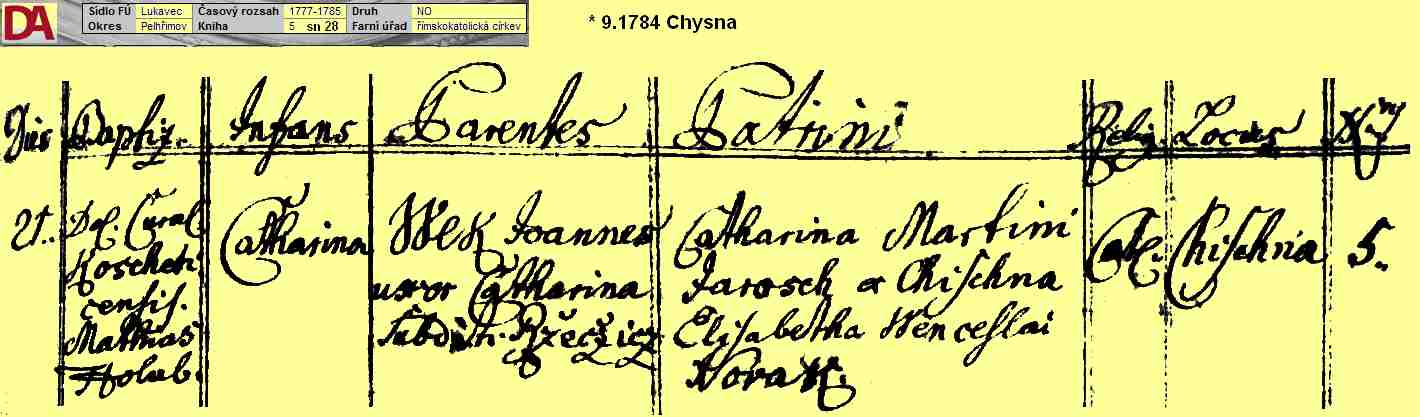 DA
Sídlo FÚ Lukavec Časový rozsah 1777-1785 Druh NO
Okres Pelhřimov Kniha 5 sn 28 Farní úřad římskokatolická církev
* 9.1784 Chysna
Dies Baptiz. Infans Parentes Patrini Relig. Locus
21. Catharina Wek Joannes Catharina Martini Cat. Chischnia 5.
Koscheti
censis. uxor Catharina Jarosch a Chischna
Mathias Subdit. Ržečžicz Elisabetha Wenceslai
Holub. Novak.